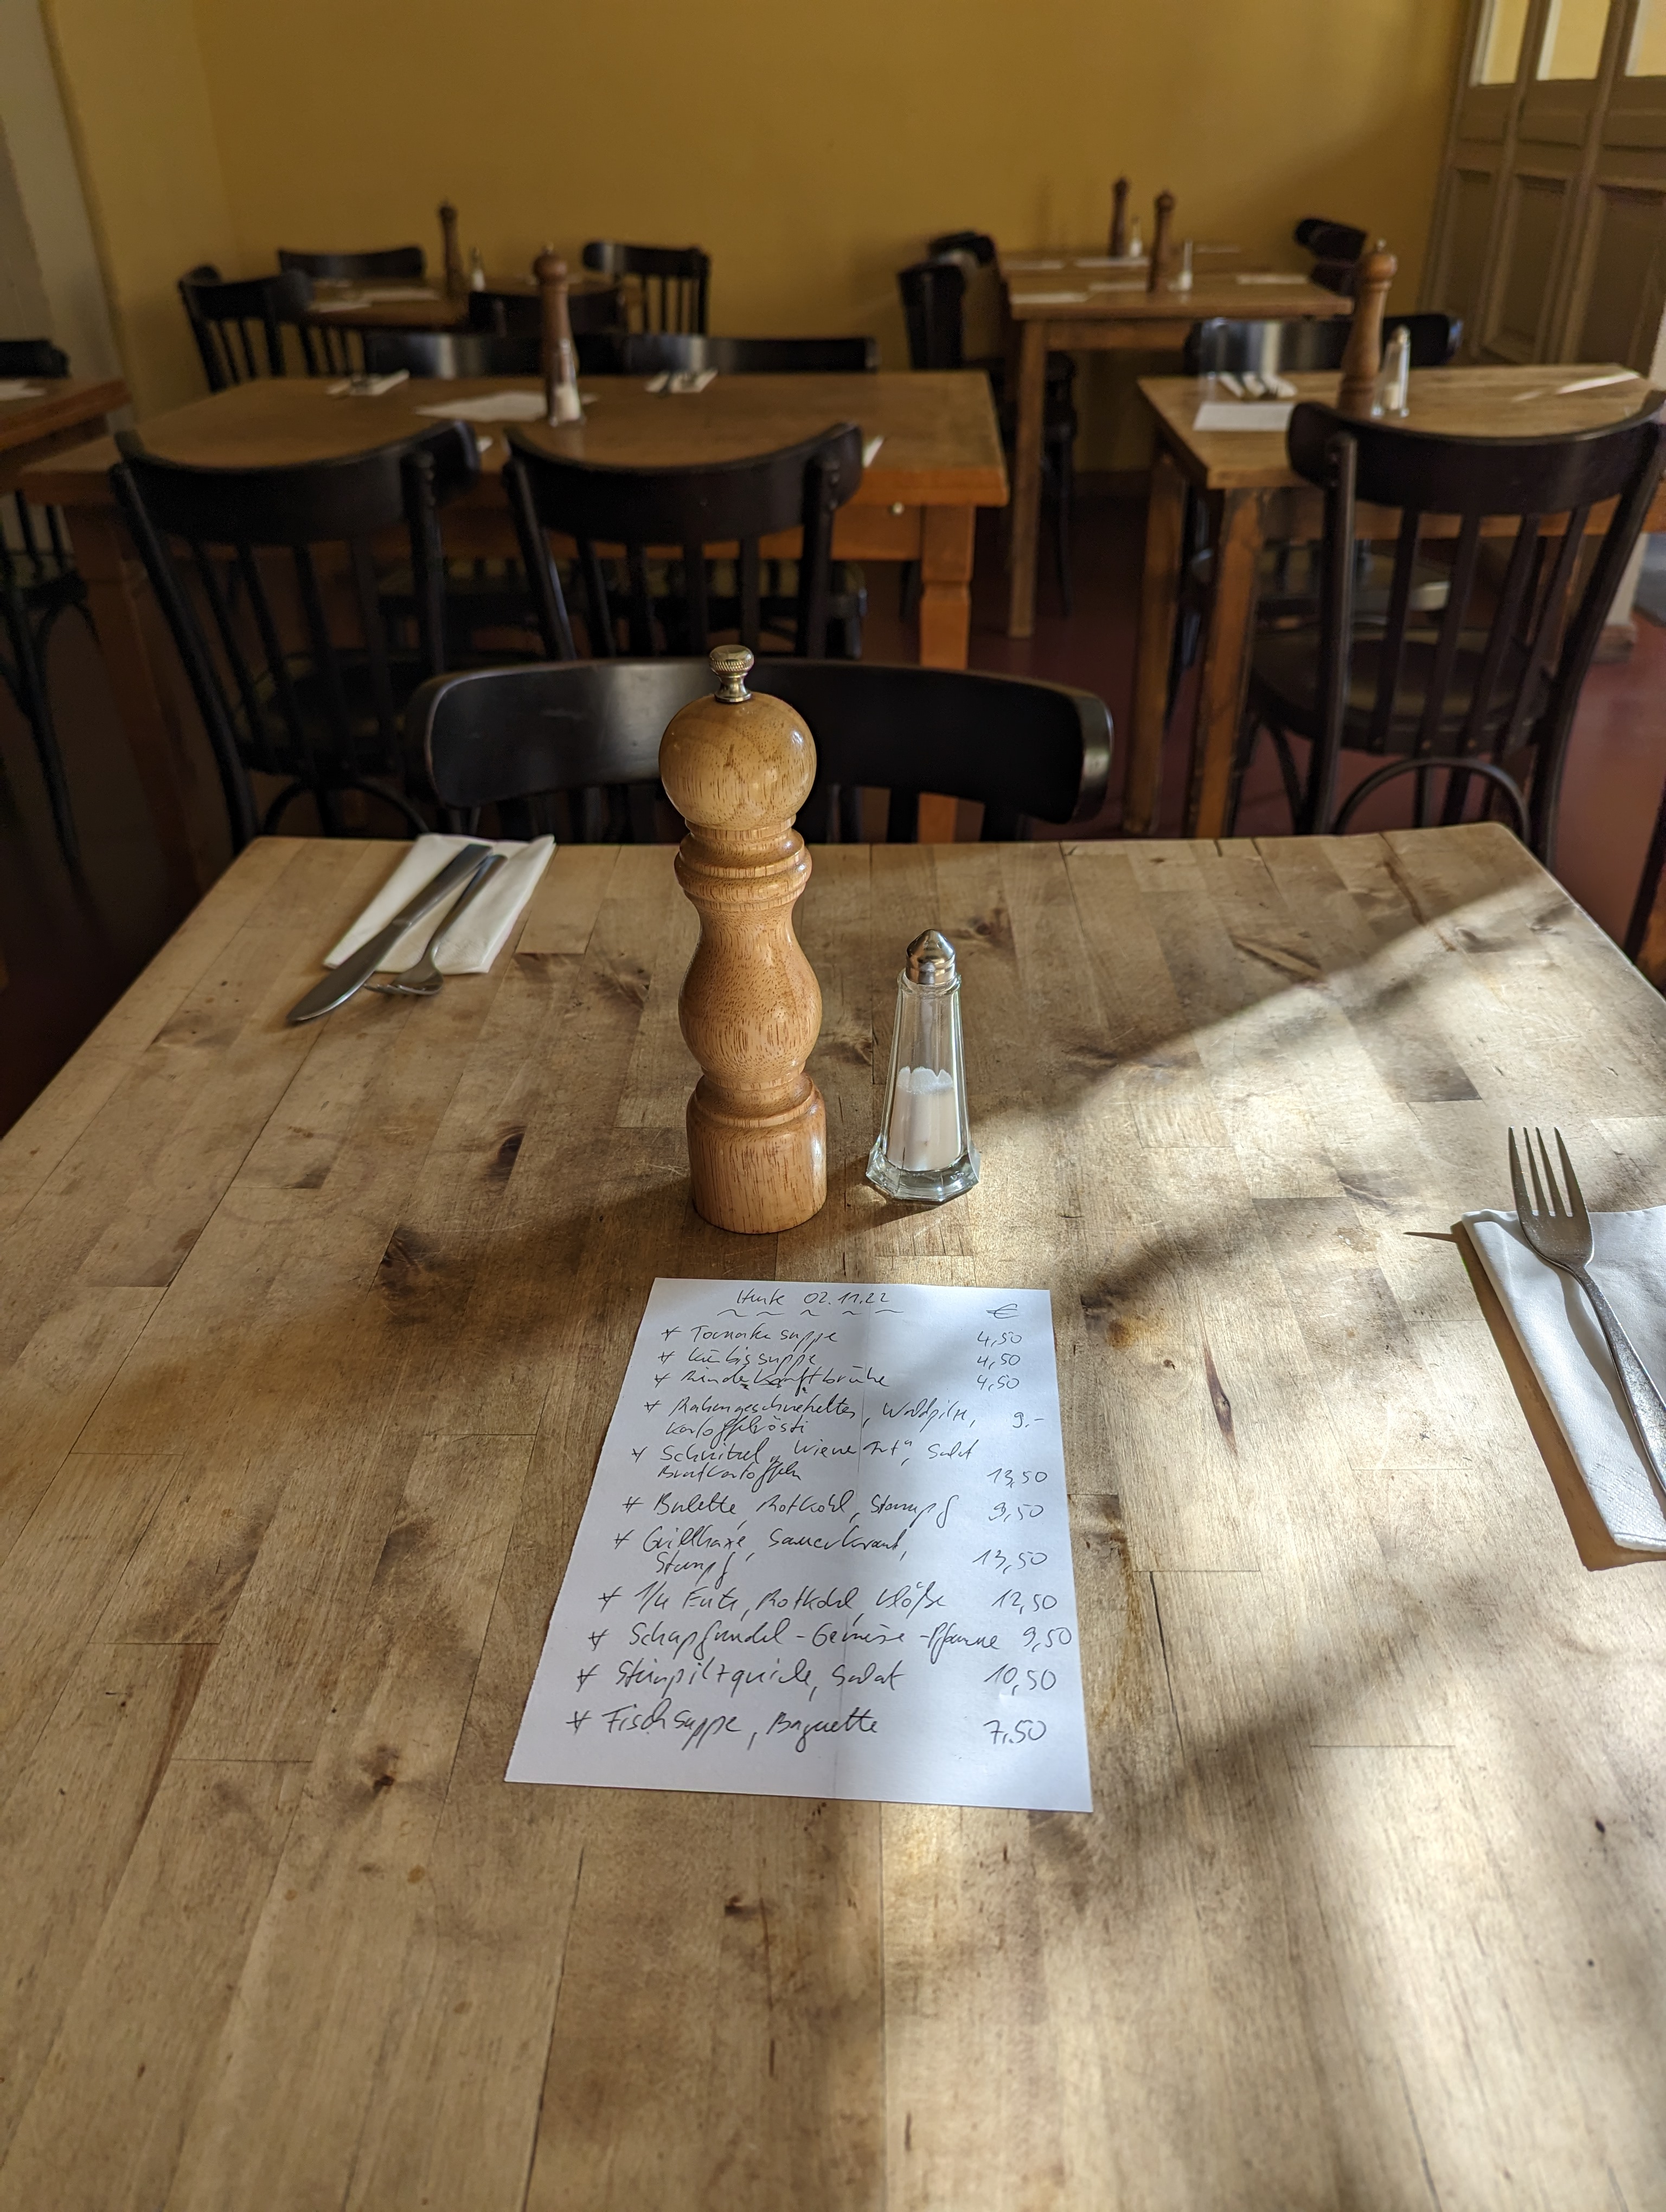 Heute 02.11.22
€
* Tomatensuppe 4,50
* Kürbissuppe 4,50
* Rinderkraftbrühe 4,50
* Rahmgeschnetzeltes, Waldpilze, 9.-
Kartoffelrösti
* Schnitzel "Wiener Art", Salat
Bratkartoffeln 13,50
* Bulette, Rotkohl, Stampf 9,50
* Grillhaxe, Sauerkraut,
Stampf 13,50
* 1/4 Ente, Rotkohl, Klöße 12,50
* Schupfnudel-Gemüse-Pfanne 9,50
* Steinpilzquiche, Salat 10,50
* Fischsuppe, Baguette 7,50